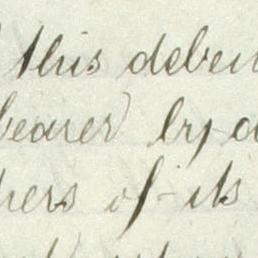 this deben
bearer by a
hers of its